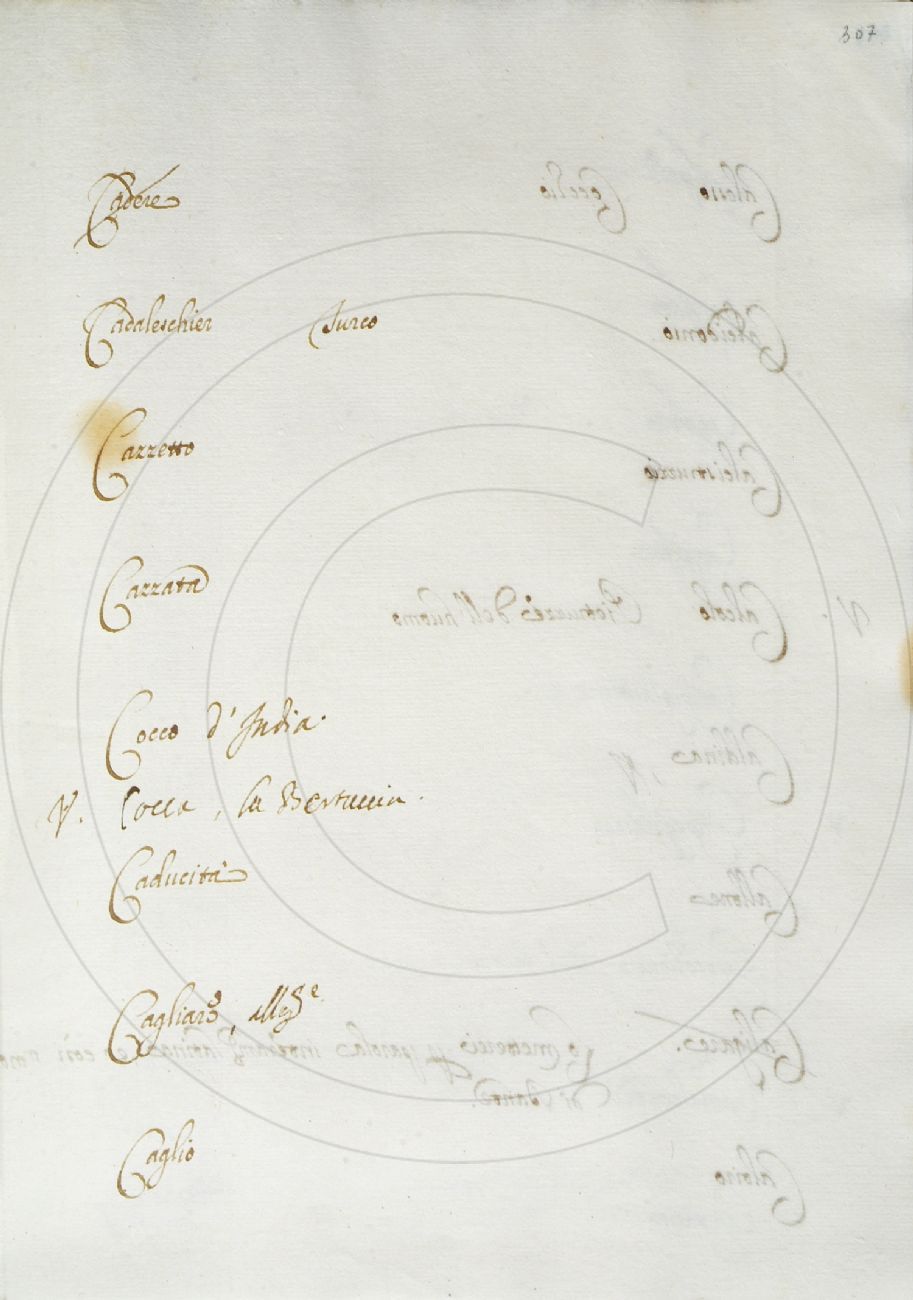 307
Cadere
Cadaleschier Turco
Cazzetto
Cazzata
Cocco d'India.
V. Cocca, la Bertuccia.
Caducità
Cagliaro,
Caglio